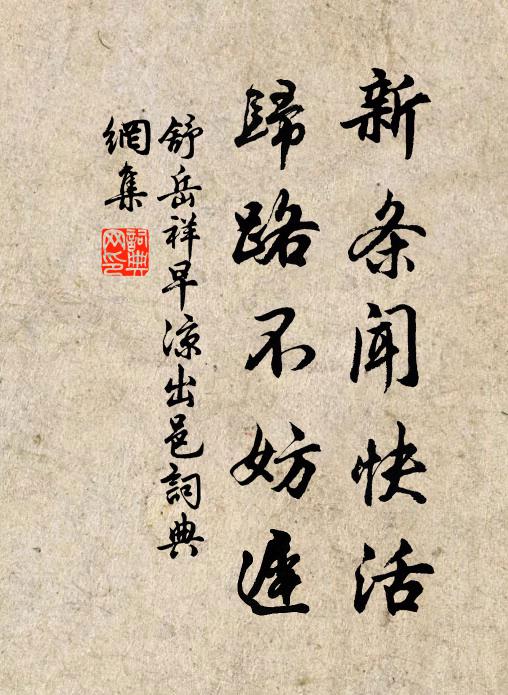 新条闻快活
歸路不妨遲
舒岳祥早凉出邑詞典
網集
詞典網印